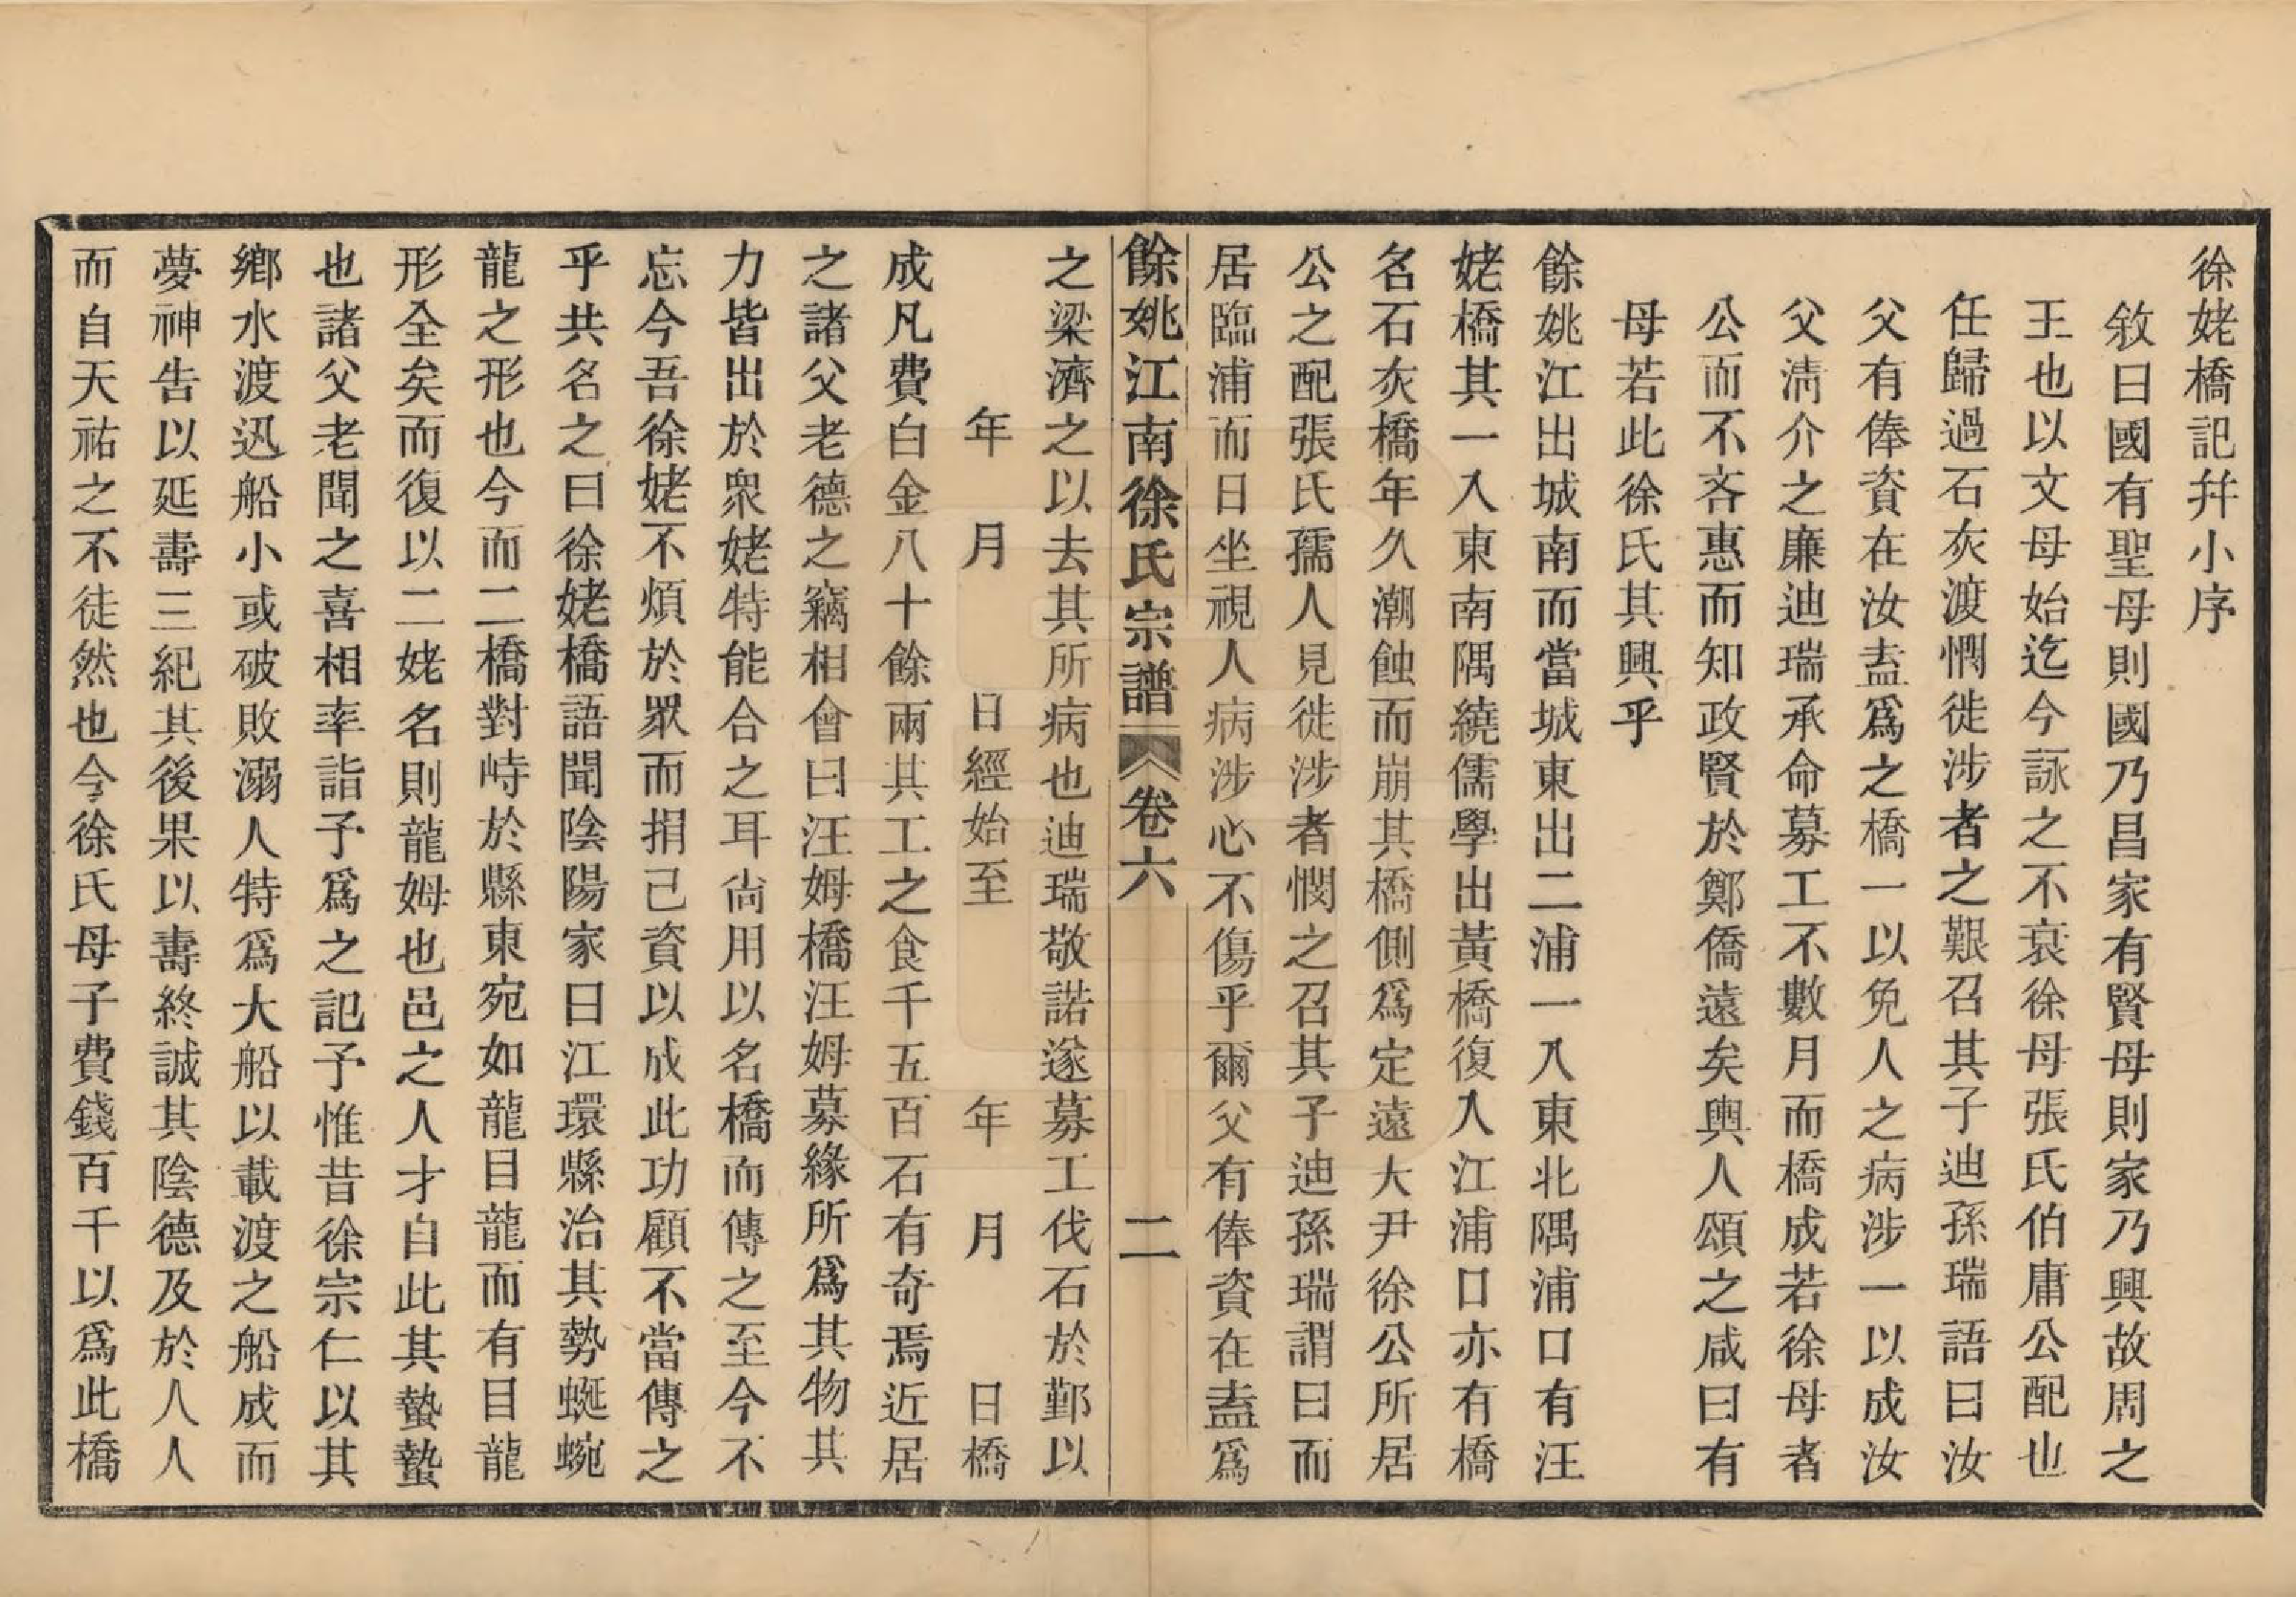 徐姥橋記幷小序
敘曰國有聖母則國乃昌家有賢母則家乃興故周之
王也以文母始迄今詠之不衰徐母張氏伯庸公配也
任歸過石灰渡憫徙涉者之艱召其子迪孫瑞語曰汝
父有俸資在汝盍爲之橋一以免人之病涉一以成汝
父淸介之廉迪瑞承命募工不數月而橋成若徐母者
公而不吝惠而知政賢於鄭僑遠矣輿人頌之咸曰有
母若此徐氏其興乎
餘姚江出城南而當城東出二浦一入東北隅浦口有汪
姥橋其一入東南隅繞儒學出黃橋復入江浦口亦有橋
名石灰橋年久潮蝕而崩其橋側爲定遠大尹徐公所居
公之配張氏孺人見徙涉者憫之召其子迪孫瑞謂曰而
居臨浦而日坐視人病涉心不傷乎爾父有俸資在盍爲
餘姚江南徐氏宗譜 卷六 二
之梁濟之以去其所病也迪瑞敬諾遂募工伐石於鄞以
年 月 日經始至 年 月 日橋
成凡費白金八十餘兩其工之食千五百石有奇焉近居
之諸父老德之竊相會曰汪姆橋汪姆募緣所爲其物其
力皆出於衆姥特能合之耳尙用以名橋而傳之至今不
忘今吾徐姥不煩於眾而捐己資以成此功顧不當傳之
乎共名之曰徐姥橋語聞陰陽家曰江環縣治其勢蜒蜿
龍之形也今而二橋對峙於縣東宛如龍目龍而有目龍
形全矣而復以二姥名則龍姆也邑之人才自此其蟄蟄
也諸父老聞之喜相率詣予爲之記予惟昔徐宗仁以其
鄉水渡迅船小或破敗溺人特爲大船以載渡之船成而
夢神告以延壽三紀其後果以壽終誠其陰德及於人人
而自天祐之不徒然也今徐氏母子費錢百千以爲此橋